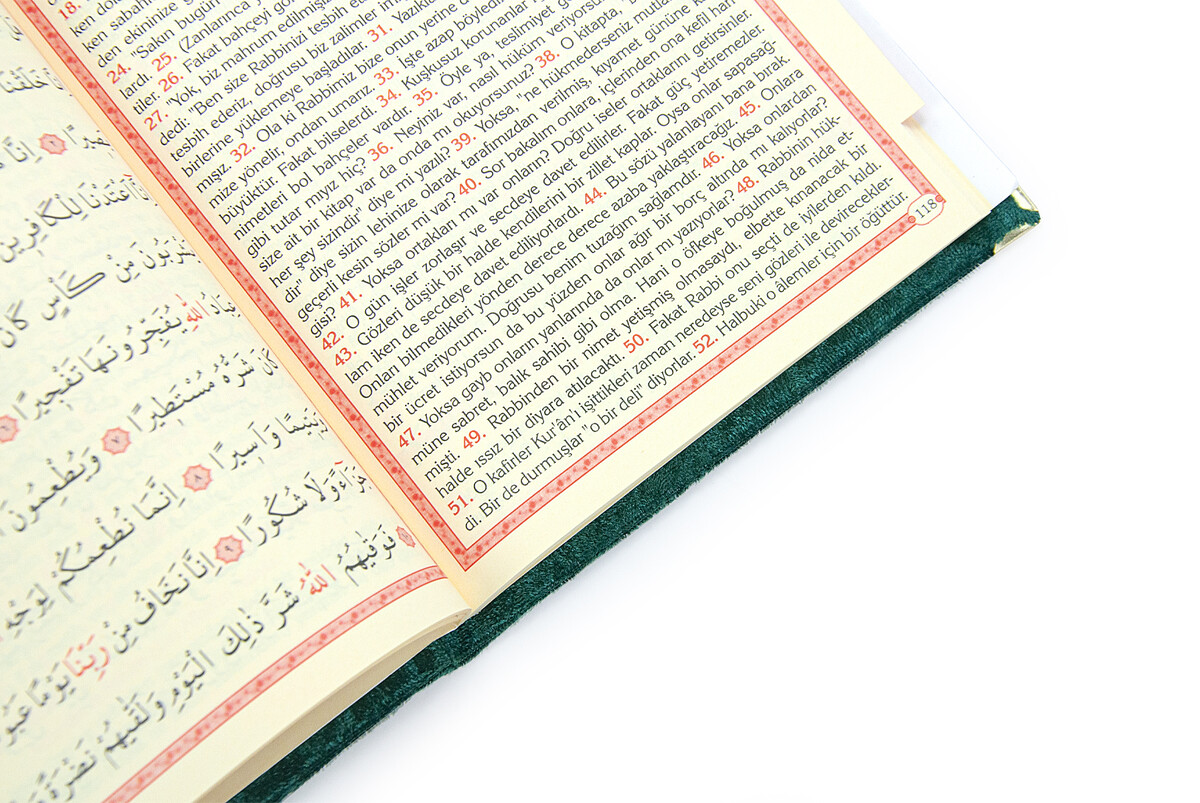 خَلَقْنَا
٢ إِنَّا
أَعْتَدْنَا لِلْكَافِرِينَ
يَشْرَبُونَ مِنْ كَأْسٍ كَانَ
عِبَادُ اللّٰهِ يُفَجِّرُونَهَا تَفْجِيرًا ٦
كَانَ شَرُّهُ مُسْتَطِيرًا ٧ وَيُطْعِمُونَ
وَيَتِيمًا وَاَسِيرًا ٨ اِنَّمَا نُطْعِمُكُمْ لِوَجْهِ
جَزَٓاءً وَلَا شُكُورًا ٩ اِنَّا نَخَافُ مِنْ رَبِّنَا يَوْمًا
فَوَقٰيهُمُ اللّٰهُ شَرَّ ذٰلِكَ الْيَوْمِ وَلَقّٰيهُمْ نَضْرَةً
18.
ken sabahı
den ekininize
24. "Sakın bugün
lardı. 25. (Zanlarınca
tiler. 26. Fakat bahçeyi
27. "Yok, biz mahrum
dedi: "Ben size Rabbinizi tesbih
tesbih ederiz, doğrusu biz zalimler
birlerine yüklemeye başladılar. 31.
mışız. 32. Ola ki Rabbimiz bize onun yerine
mize yönelir, ondan umarız. 33. İşte azap
büyüktür. Fakat bilselerdi. 34. Kuşkusuz korunanlar
nimetleri bol bahçeler vardır. 35. Öyle ya, teslimiyet
gibi tutar mıyız hiç? 36. Neyiniz var, nasıl hüküm
size ait bir kitap var da onda mı okuyorsunuz? 38. O kitapta,
her şey sizindir" diye mi yazılı? 39. Yoksa, "ne hükmederseniz
dir" diye sizin lehinize olarak tarafımızdan verilmiş, kıyamet gününe
geçerli kesin sözler mi var? 40. Sor bakalım onlara, içlerinden ona kefil han-
gisi? 41. Yoksa ortakları mı var onların? Doğru iseler ortaklarını getirsinler.
42. O gün işler zorlaşır ve secdeye davet edilirler. Fakat güç yetiremezler.
43. Gözleri düşük bir halde kendilerini bir zillet kaplar. Oysa onlar sapasağ-
lam iken de secdeye davet ediliyorlardı. 44. Bu sözü yalanlayanı bana bırak
Onları bilmedikleri yönden derece derece azaba yaklaştıracağız. 45. Onlara
mühlet veriyorum. Doğrusu benim tuzağım sağlamdır. 46. Yoksa onlardan
bir ücret istiyorsun da bu yüzden onlar ağır bir borç altında mı kalıyorlar?
47. Yoksa gayb onların yanlarında da onlar mı yazıyorlar? 48. Rabbinin hük-
müne sabret, balık sahibi gibi olma. Hani o öfkeye boğulmuş da nida et-
mişti. 49. Rabbinden bir nimet yetişmiş olmasaydı, elbette kınanacak bir
halde ıssız bir diyara atılacaktı. 50. Fakat Rabbi onu seçti de iyilerden kıldı.
51. O kafirler Kur'ân'ı işittikleri zaman neredeyse seni gözleri ile devirecekler-
di. Bir de durmuşlar "o bir deli" diyorlar. 52. Halbuki o âlemler için bir öğüttür.
118